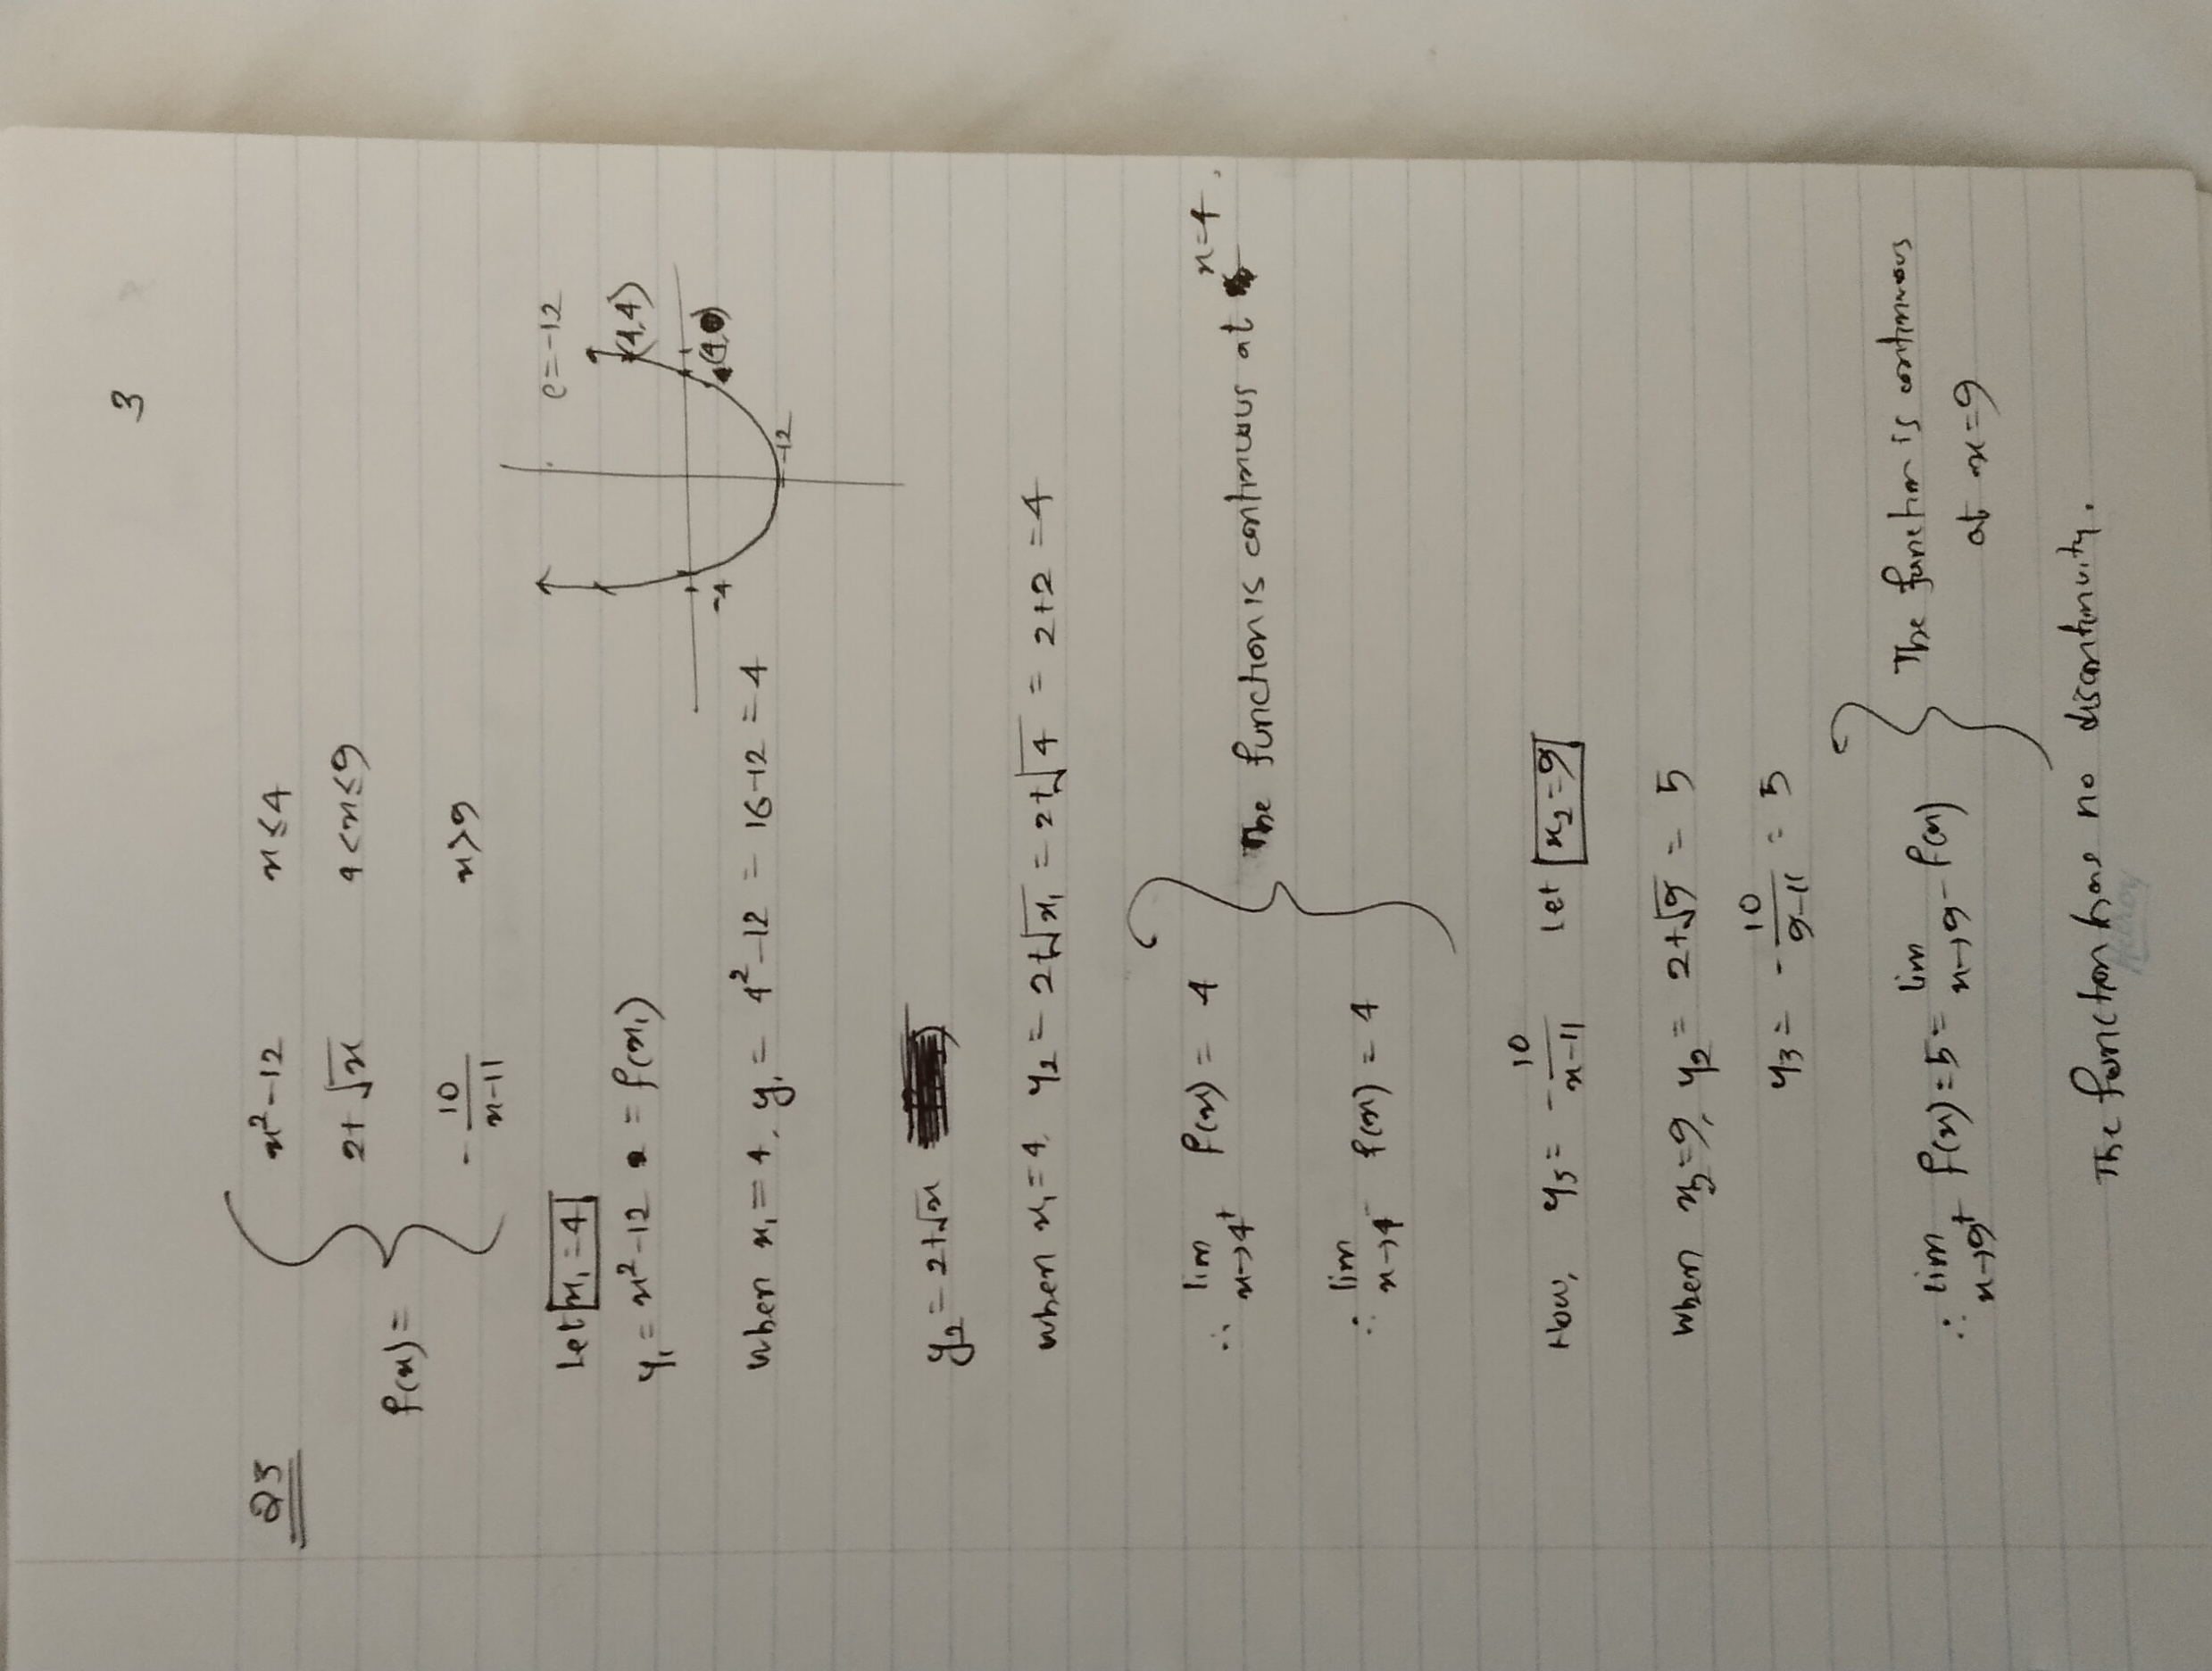 3
Q3
f(x) = { x² - 12    x ≤ 4
2 + √x    4 < x ≤ 9
- 10/(x-11)    x > 9
Let x₁ = 4
y₁ = x² - 12 = f(x₁)
c = -12
(4,4)
-4
-12
When x₁ = 4, y₁ = 4² - 12 = 16 - 12 = 4
y₂ = 2 + √x
when x₁ = 4, y₂ = 2 + √x₁ = 2 + √4 = 2 + 2 = 4
∴ lim x→4⁺ f(x) = 4
The function is continuous at x = 4.
∴ lim x→4⁻ f(x) = 4
Now, y₃ = - 10/(x-11)    let x₂ = 9
When x₂ = 9, y₂ = 2 + √9 = 5
y₃ = - 10/(9-11) = 5
∴ lim x→9⁺ f(x) = 5 = lim x→9⁻ f(x) } The function is continuous
at x = 9
The function has no discontinuity.